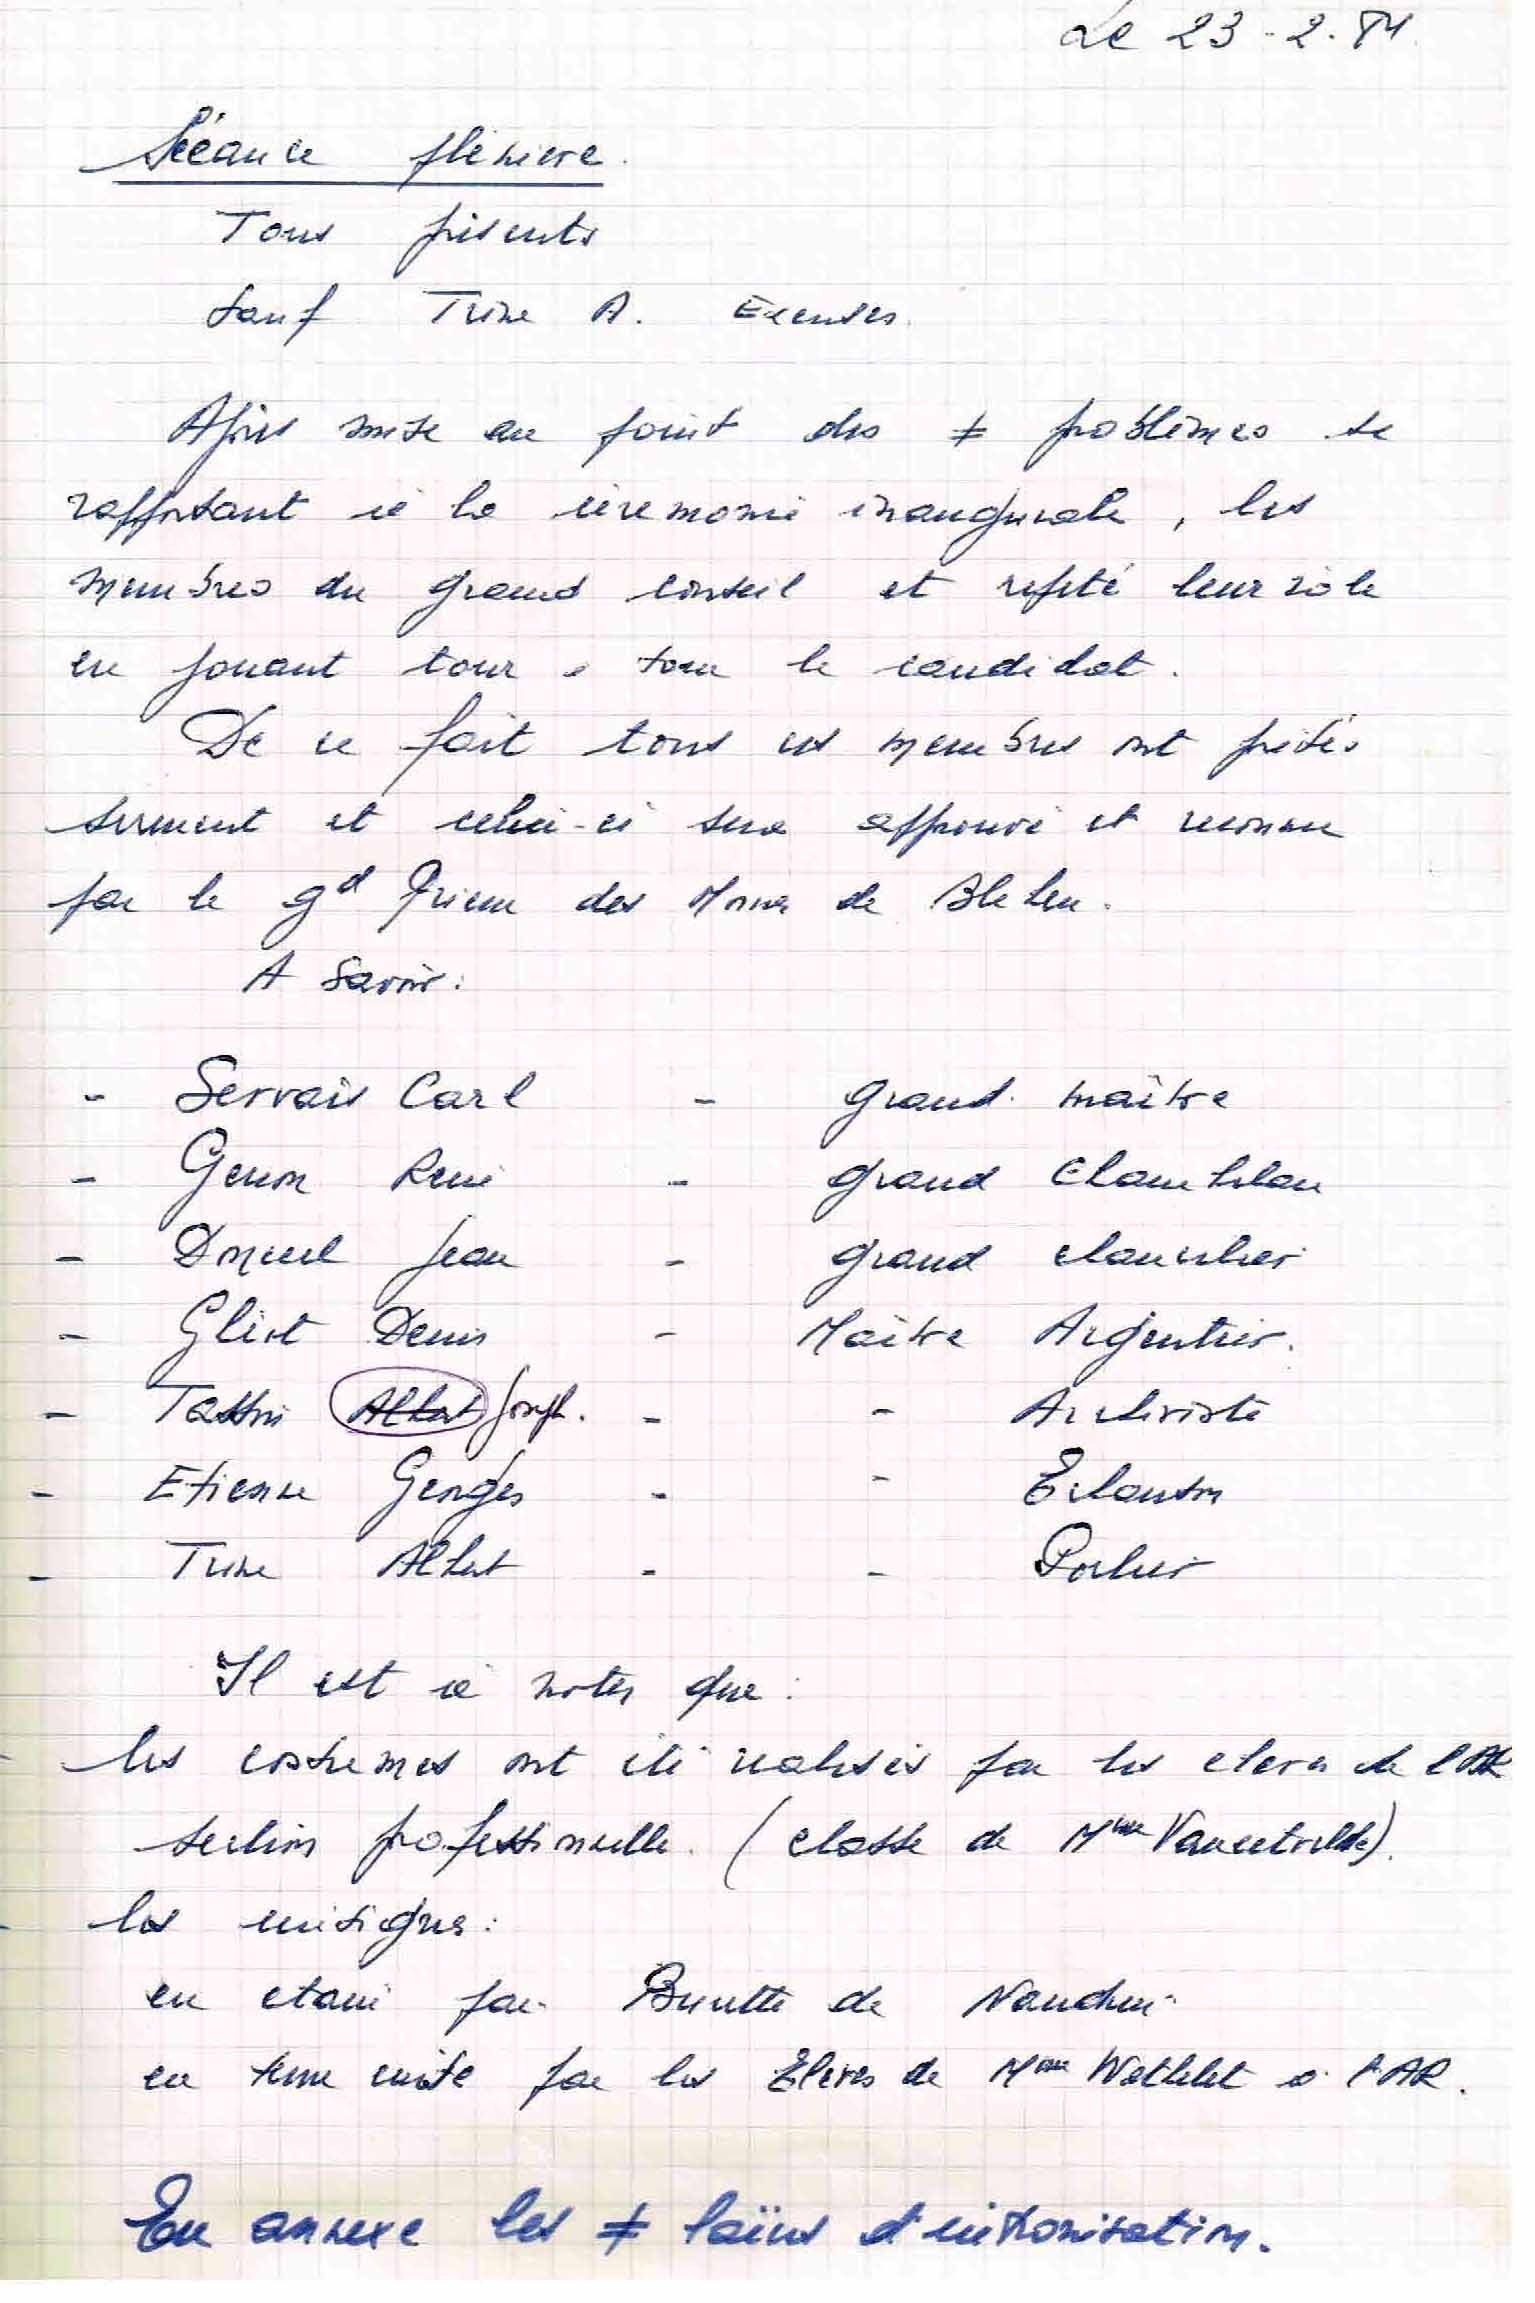 Le 23-2-84.
Séance plénière.
Tous présents
Sauf Trine A. Excusés.
Après mise au point des ≠ problèmes se
rapportant à la cérémonie inaugurale, les
membres du grand conseil et répété leur rôle
en jouant tour à tour le candidat.
De ce fait tous ces membres ont prétés
serment et celui-ci sera approuvé et reconnu
par le gd Prieur des de
A savoir:
- Servais Carl - grand maître
- Genon René - grand Chambelan
- Jean - grand chancelier
- Denis - Maître Argentier.
- Tassin Albert Joseph. - - Archiviste
- Etienne Georges - - Echanson
- Trine Albert - - Portier
Il est à noter que:
- les costumes ont été réalisés par les élèves de l'AR
section professionnelle. (classe de Mme).
- les insignes:
en étain par de
en terre cuite par les Elèves de Mme Wathelet à l'AR.
En annexe les ≠ laïus d'intronisation.